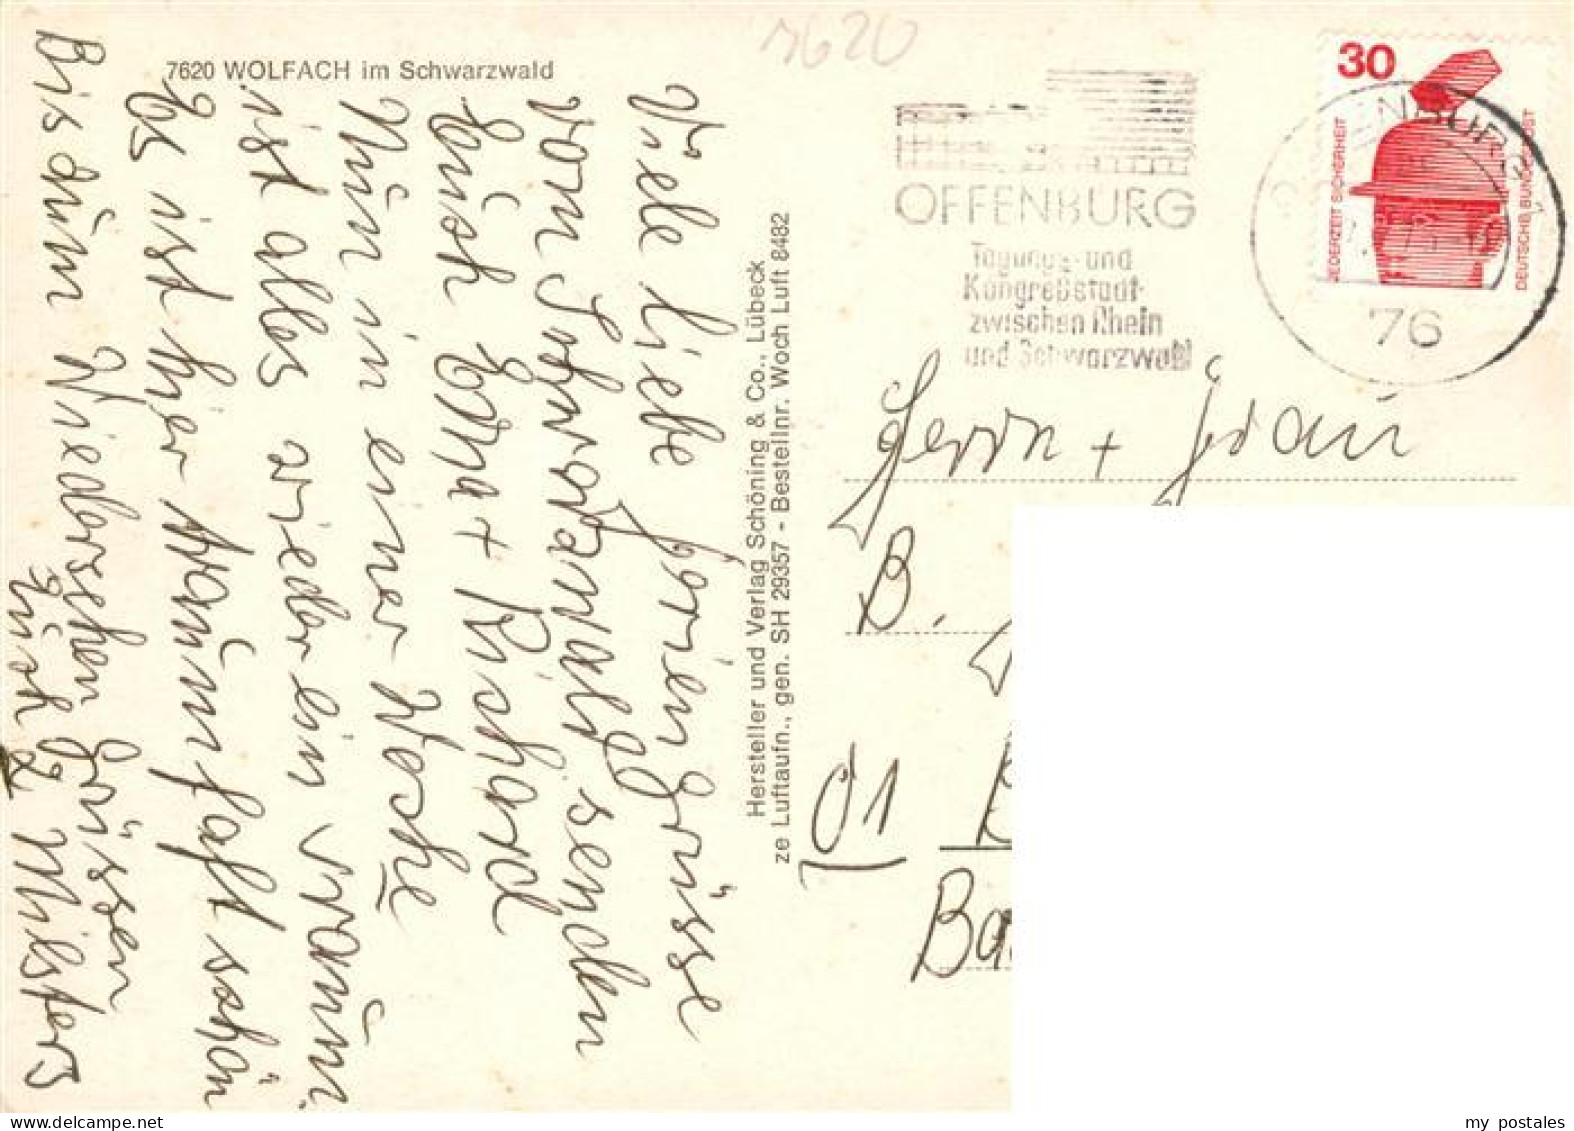 7620 WOLFACH im Schwarzwald
7620
Viele liebe Feriengrüsse
vom Schwarzwald senden
Euch Erna + Richard
Nun in einer Woche
ist alles wieder ein Traum.
Es ist hier traumhaft schön
Bis zum Wiedersehen grüssen
Euch Milsters
Hersteller und Verlag Schöning & Co., Lübeck
ze Luftaufn., gen. SH 29357 - Bestellnr. Woch Luft 8482
OFFENBURG
Tagungs- und
Kongreßstadt
zwischen Rhein
und Schwarzwald
30
JEDERZEIT SICHERHEIT
DEUTSCHE BUNDESPOST
76
Herrn + Frau
B.
01
my postales